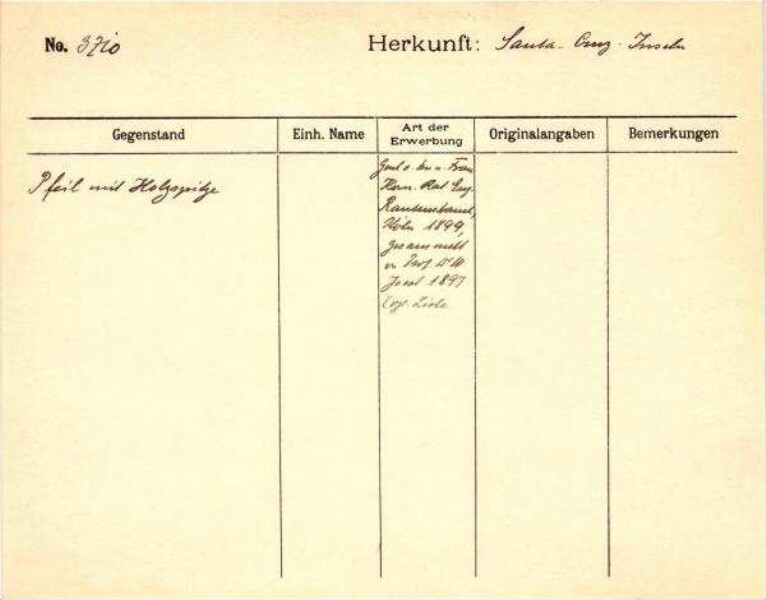 No. 3710
Herkunft: Santa-Cruz-Inseln
Gegenstand
Einh. Name
Art der
Erwerbung
Originalangaben
Bemerkungen
Pfeil mit Holzspitze
Frau
Rat Eug.
Rautenstrauch,
Köln 1899,
gesammelt
v. Prof. Dr
Joest 1897